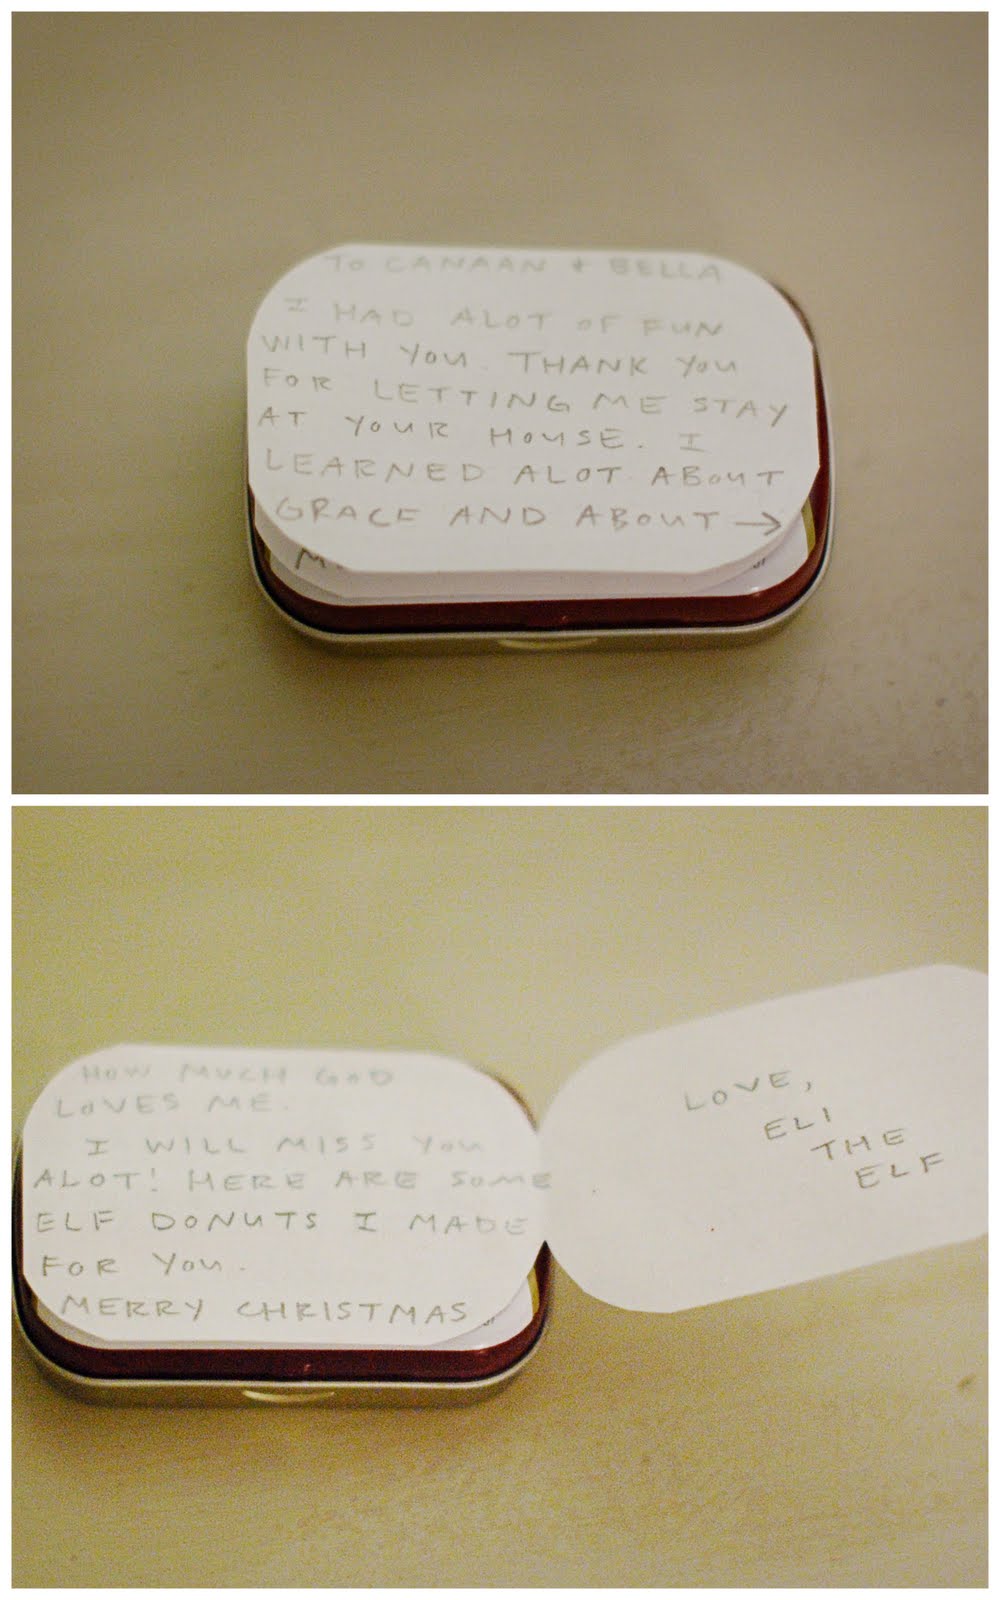 TO CANAAN + BELLA
I HAD ALOT OF FUN
WITH YOU. THANK YOU
FOR LETTING ME STAY
AT YOUR HOUSE. I
LEARNED ALOT ABOUT
GRACE AND ABOUT →
HOW MUCH GOD
LOVES ME.
I WILL MISS YOU
ALOT! HERE ARE SOME
ELF DONUTS I MADE
FOR YOU.
MERRY CHRISTMAS
LOVE,
ELI
THE
ELF